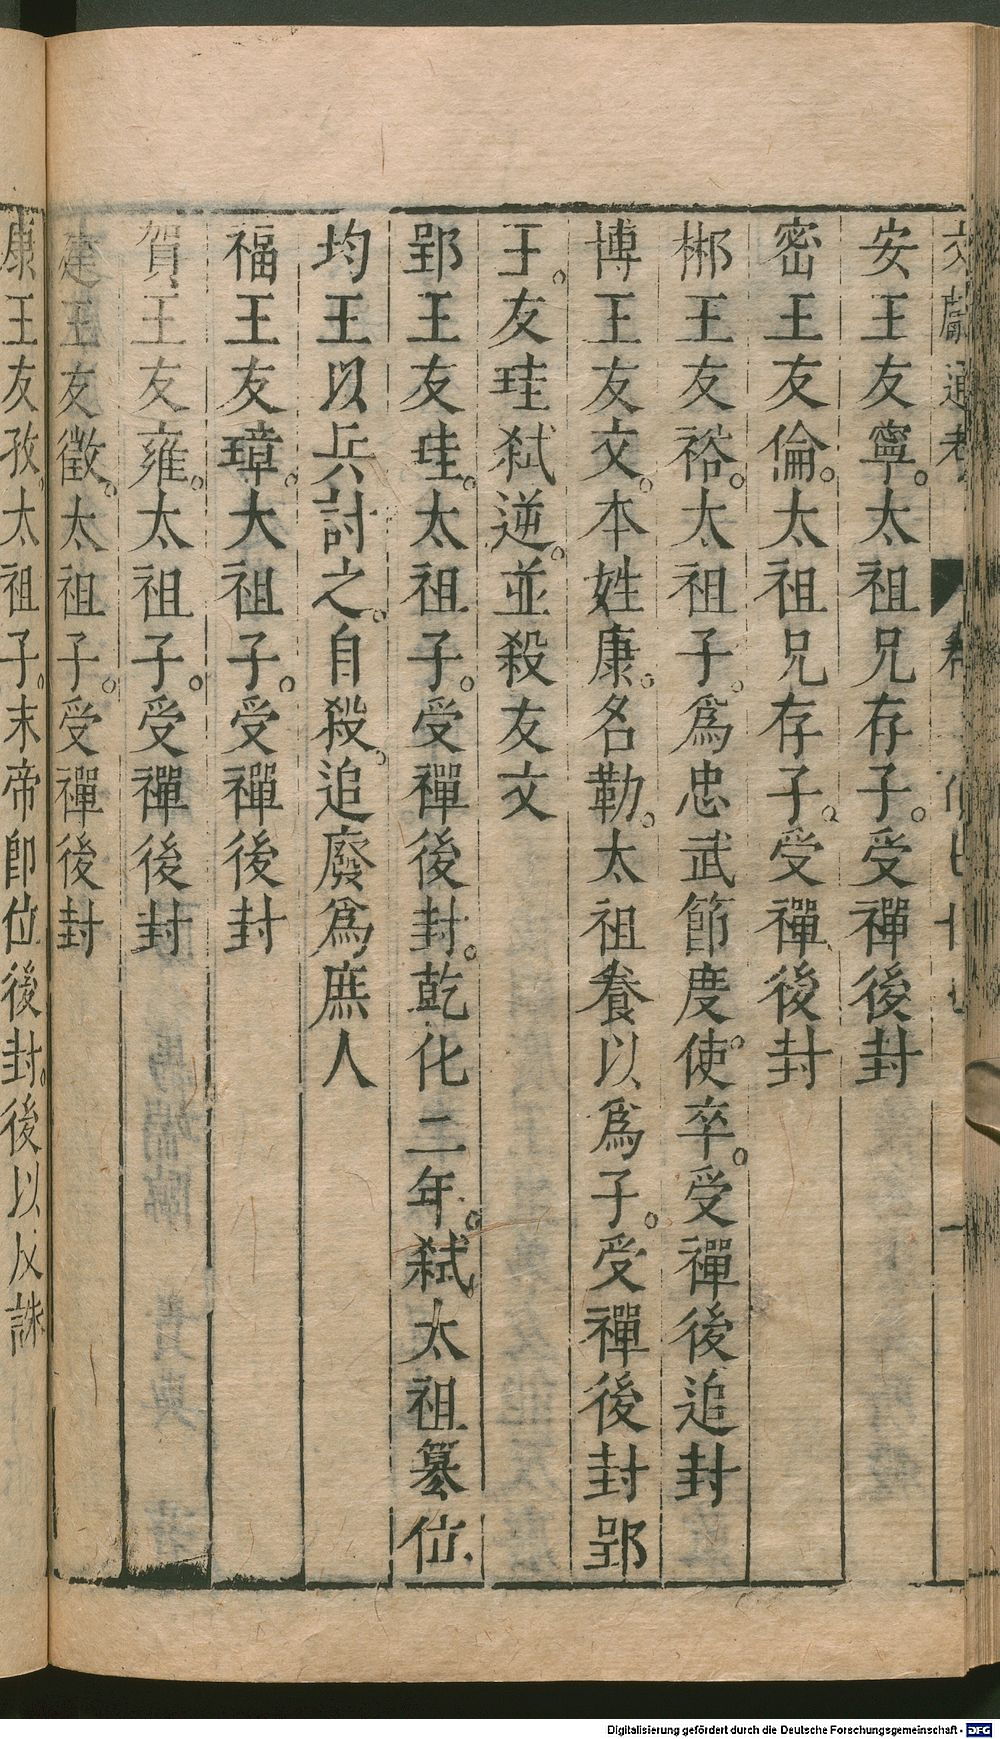 文獻通考
安王友寧。太祖兄存子。受禪後封
密王友倫。太祖兄存子。受禪後封
郴王友裕。太祖子。爲忠武節度使。卒。受禪後追封
博王友文。本姓康。名勒。太祖養以爲子。受禪後封郢
王。友珪弑逆。並殺友文
郢王友珪。太祖子。受禪後封。乾化二年。弑太祖篡位
均王以兵討之。自殺。追廢爲庶人
福王友璋。太祖子。受禪後封
賀王友雍。太祖子。受禪後封
建王友徵。太祖子。受禪後封
康王友孜。太祖子。末帝卽位後封。後以反誅
Digitalisierung gefördert durch die Deutsche Forschungsgemeinschaft - DFG